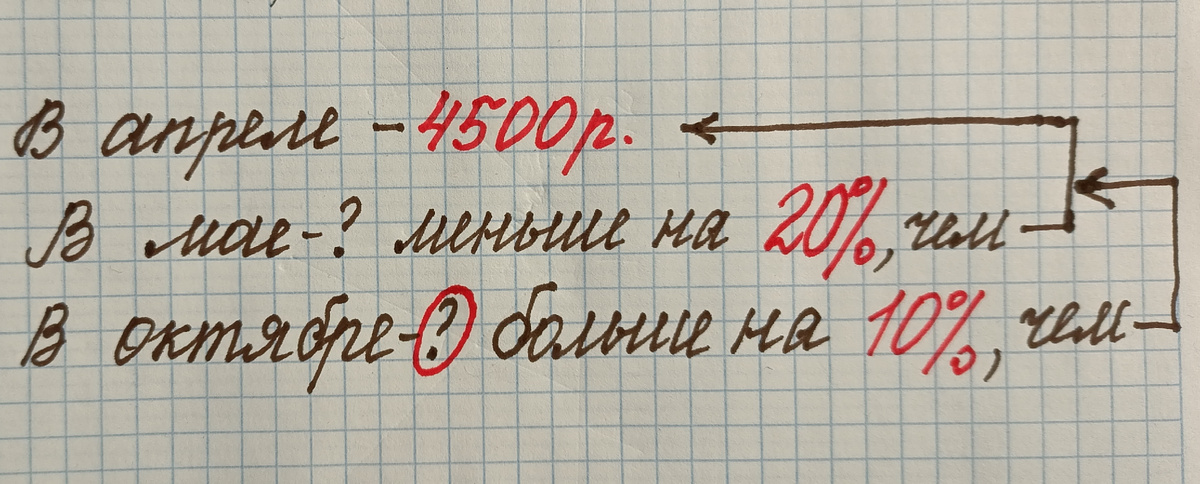 В апреле - 4500р.
В мае-? меньше на 20%, чем
В октябре-? больше на 10%, чем